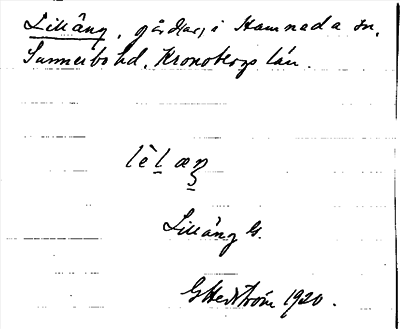 Lilläng, gård(ar) i Hamneda sn,
Sunnerbo hd. Kronobergs län.
lèl æŋ
Lilläng G.
G Hedström 1920.